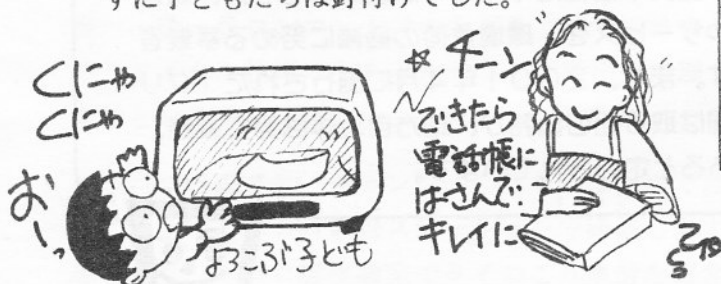 ずに子どもたちは釘付けでした。
くにゃ
くにゃ
おーっ
よろこぶ子ども
チーン
できたら
電話帳に
はさんで
キレイに